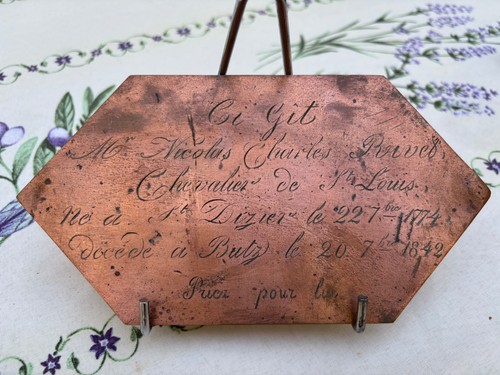 Ci Git
Mr Nicolas Charles
Chevalier de St Louis,
Né à St Dizier le 22 7bre 1774
Décédé à Butz le 20 7bre 1842
Priez pour lui